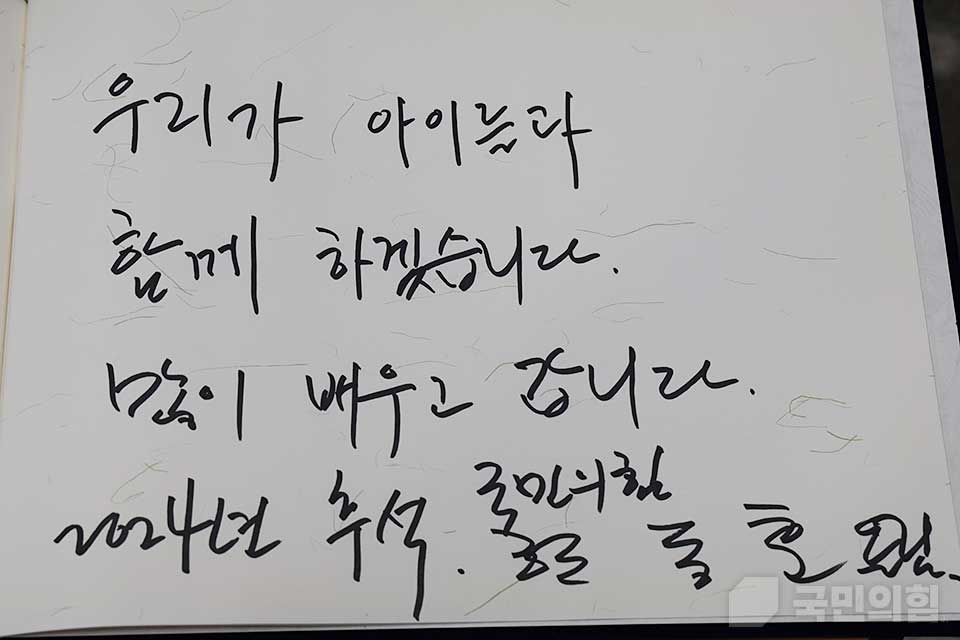 우리가 아이들과
함께 하겠습니다.
많이 배우고 갑니다.
2024년 추석. 국민의힘
국민의힘